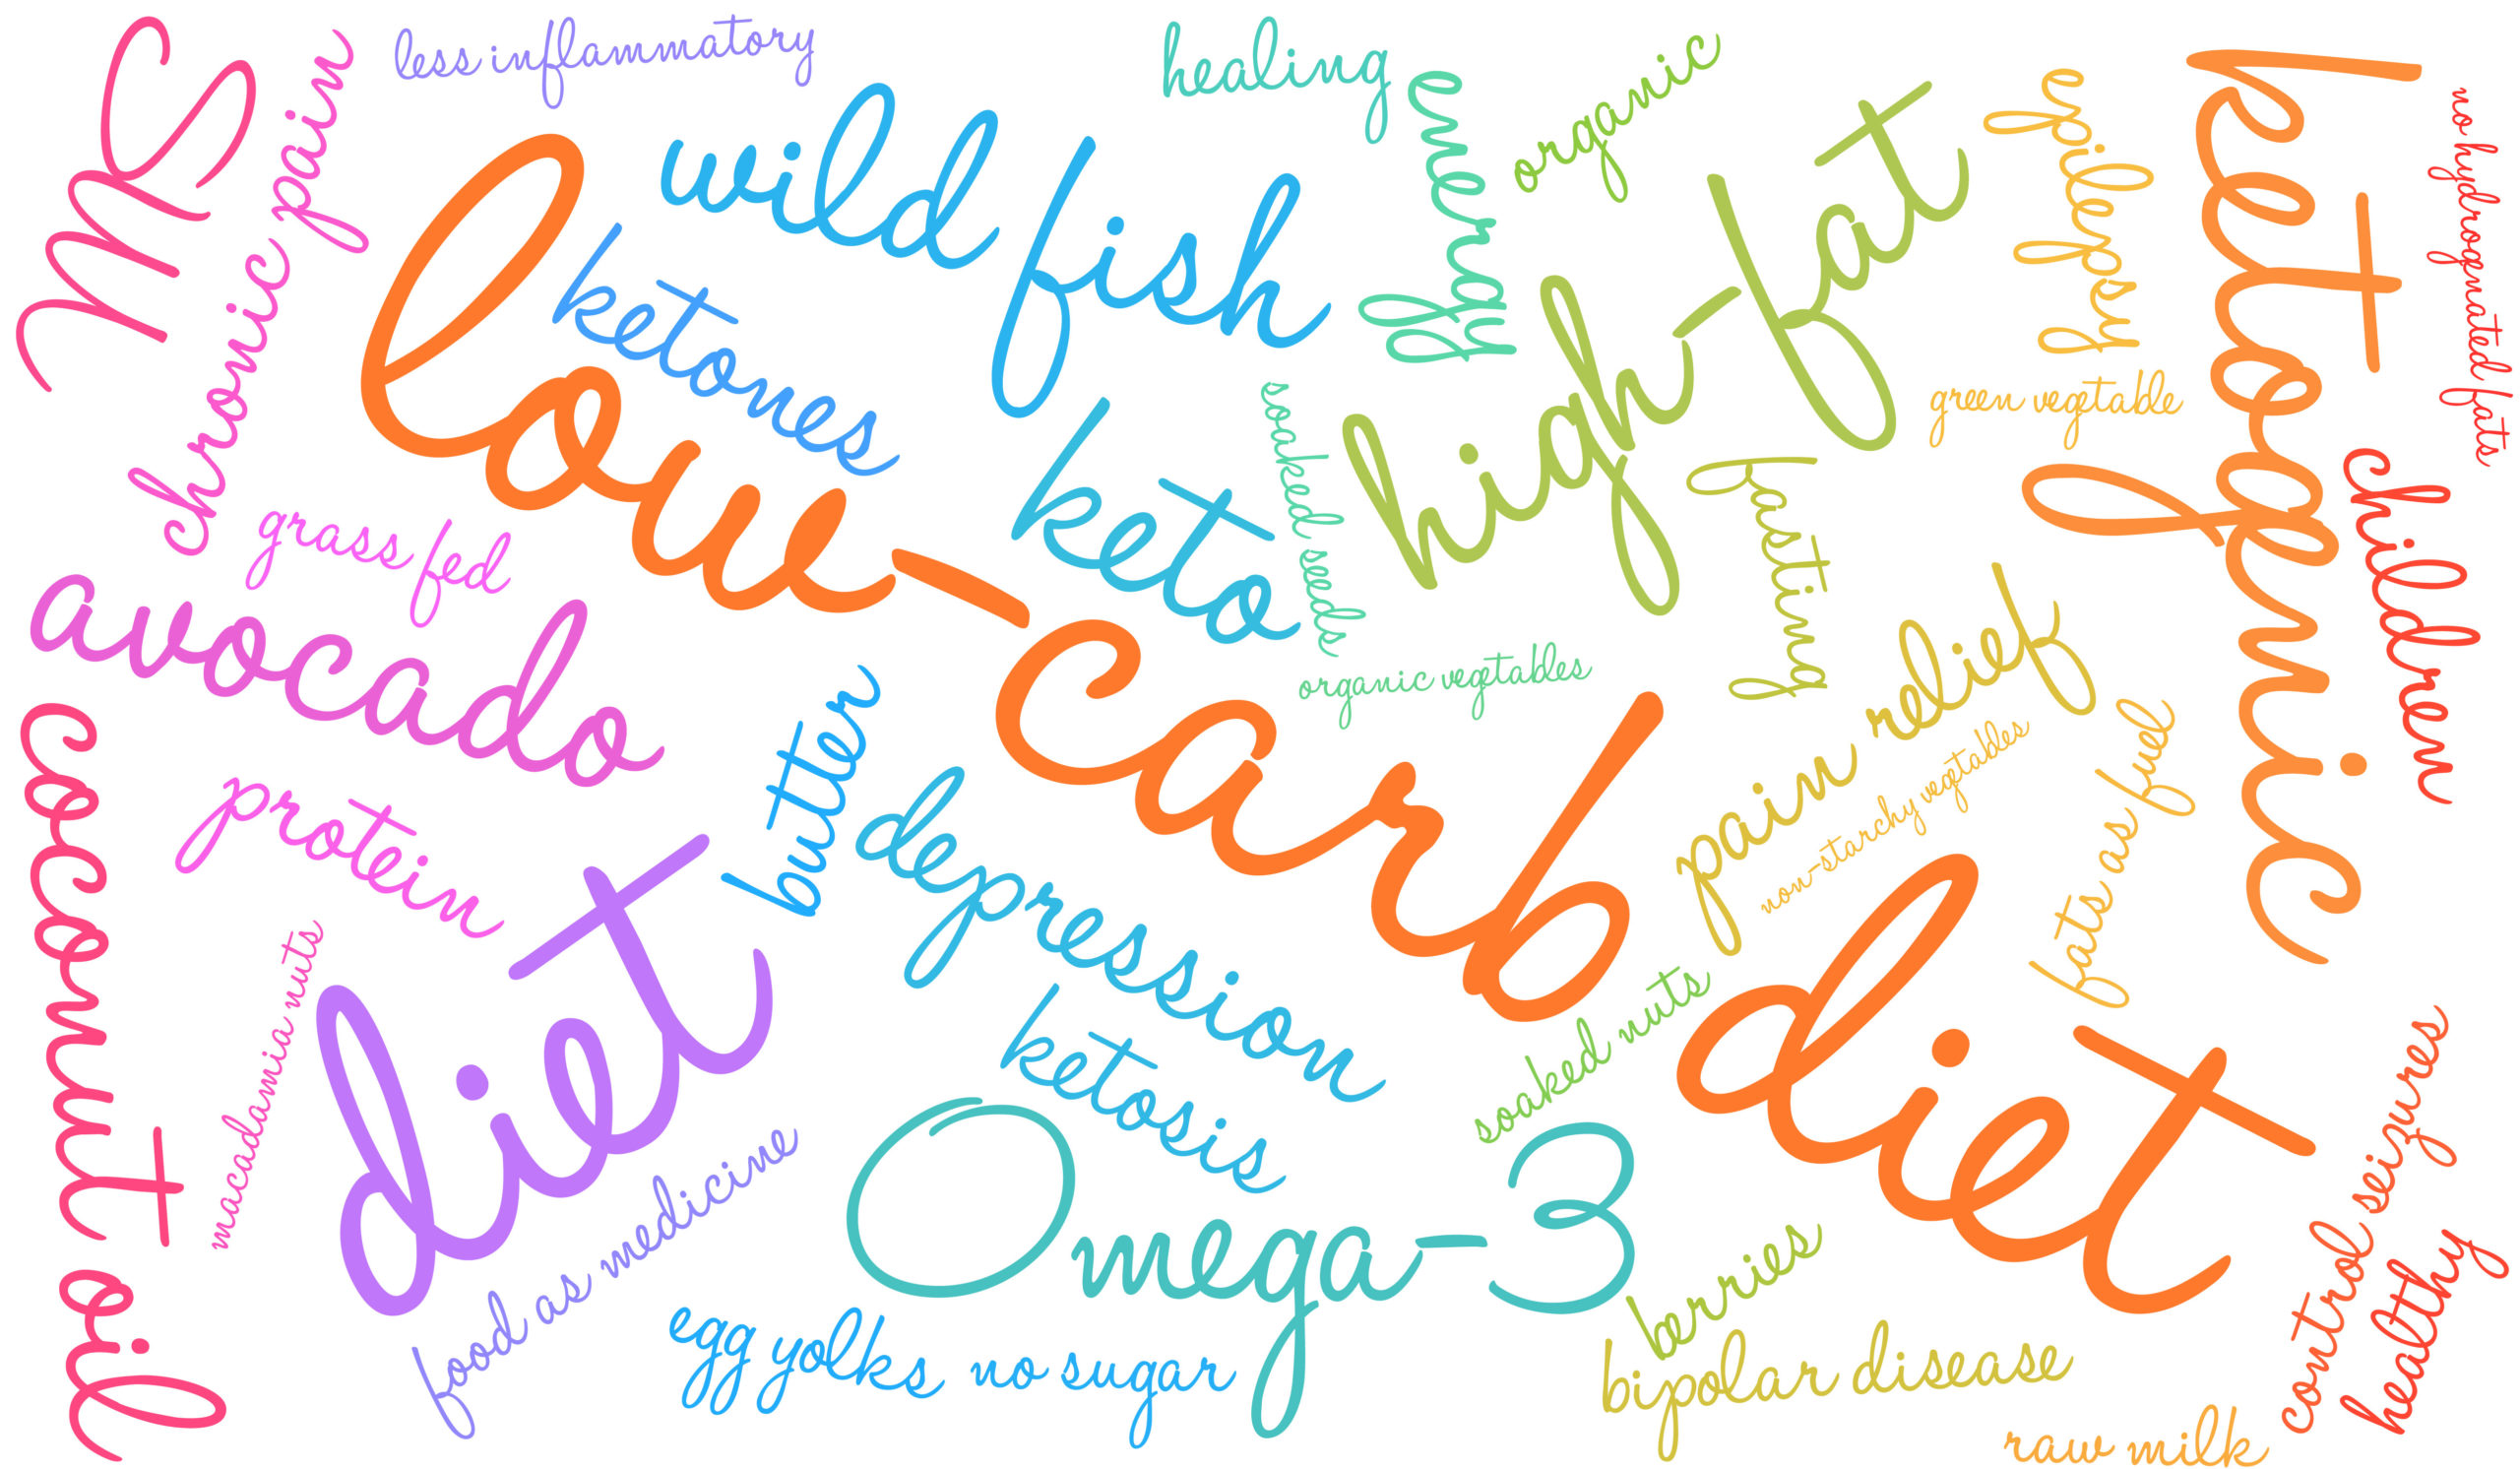 MS
chronic pain
less inflammatory
wild fish
healing
energy
organic
high-fat
epilepsy
ketogenic
no hydrogenated fats
low-carb diet
ketones
keto
soaked seeds
green vegetable
fasting
children
grass fed
avocado
organic vegetables
pain relief
non-starchy vegetables
fats as fuel
coconut oil
protein
butter
depression
diet
macadamia nuts
ketosis
soaked nuts
food as medicine
Omega-3
control seizures
healthy
berries
egg yolks
no sugar
bipolar disease
raw milk